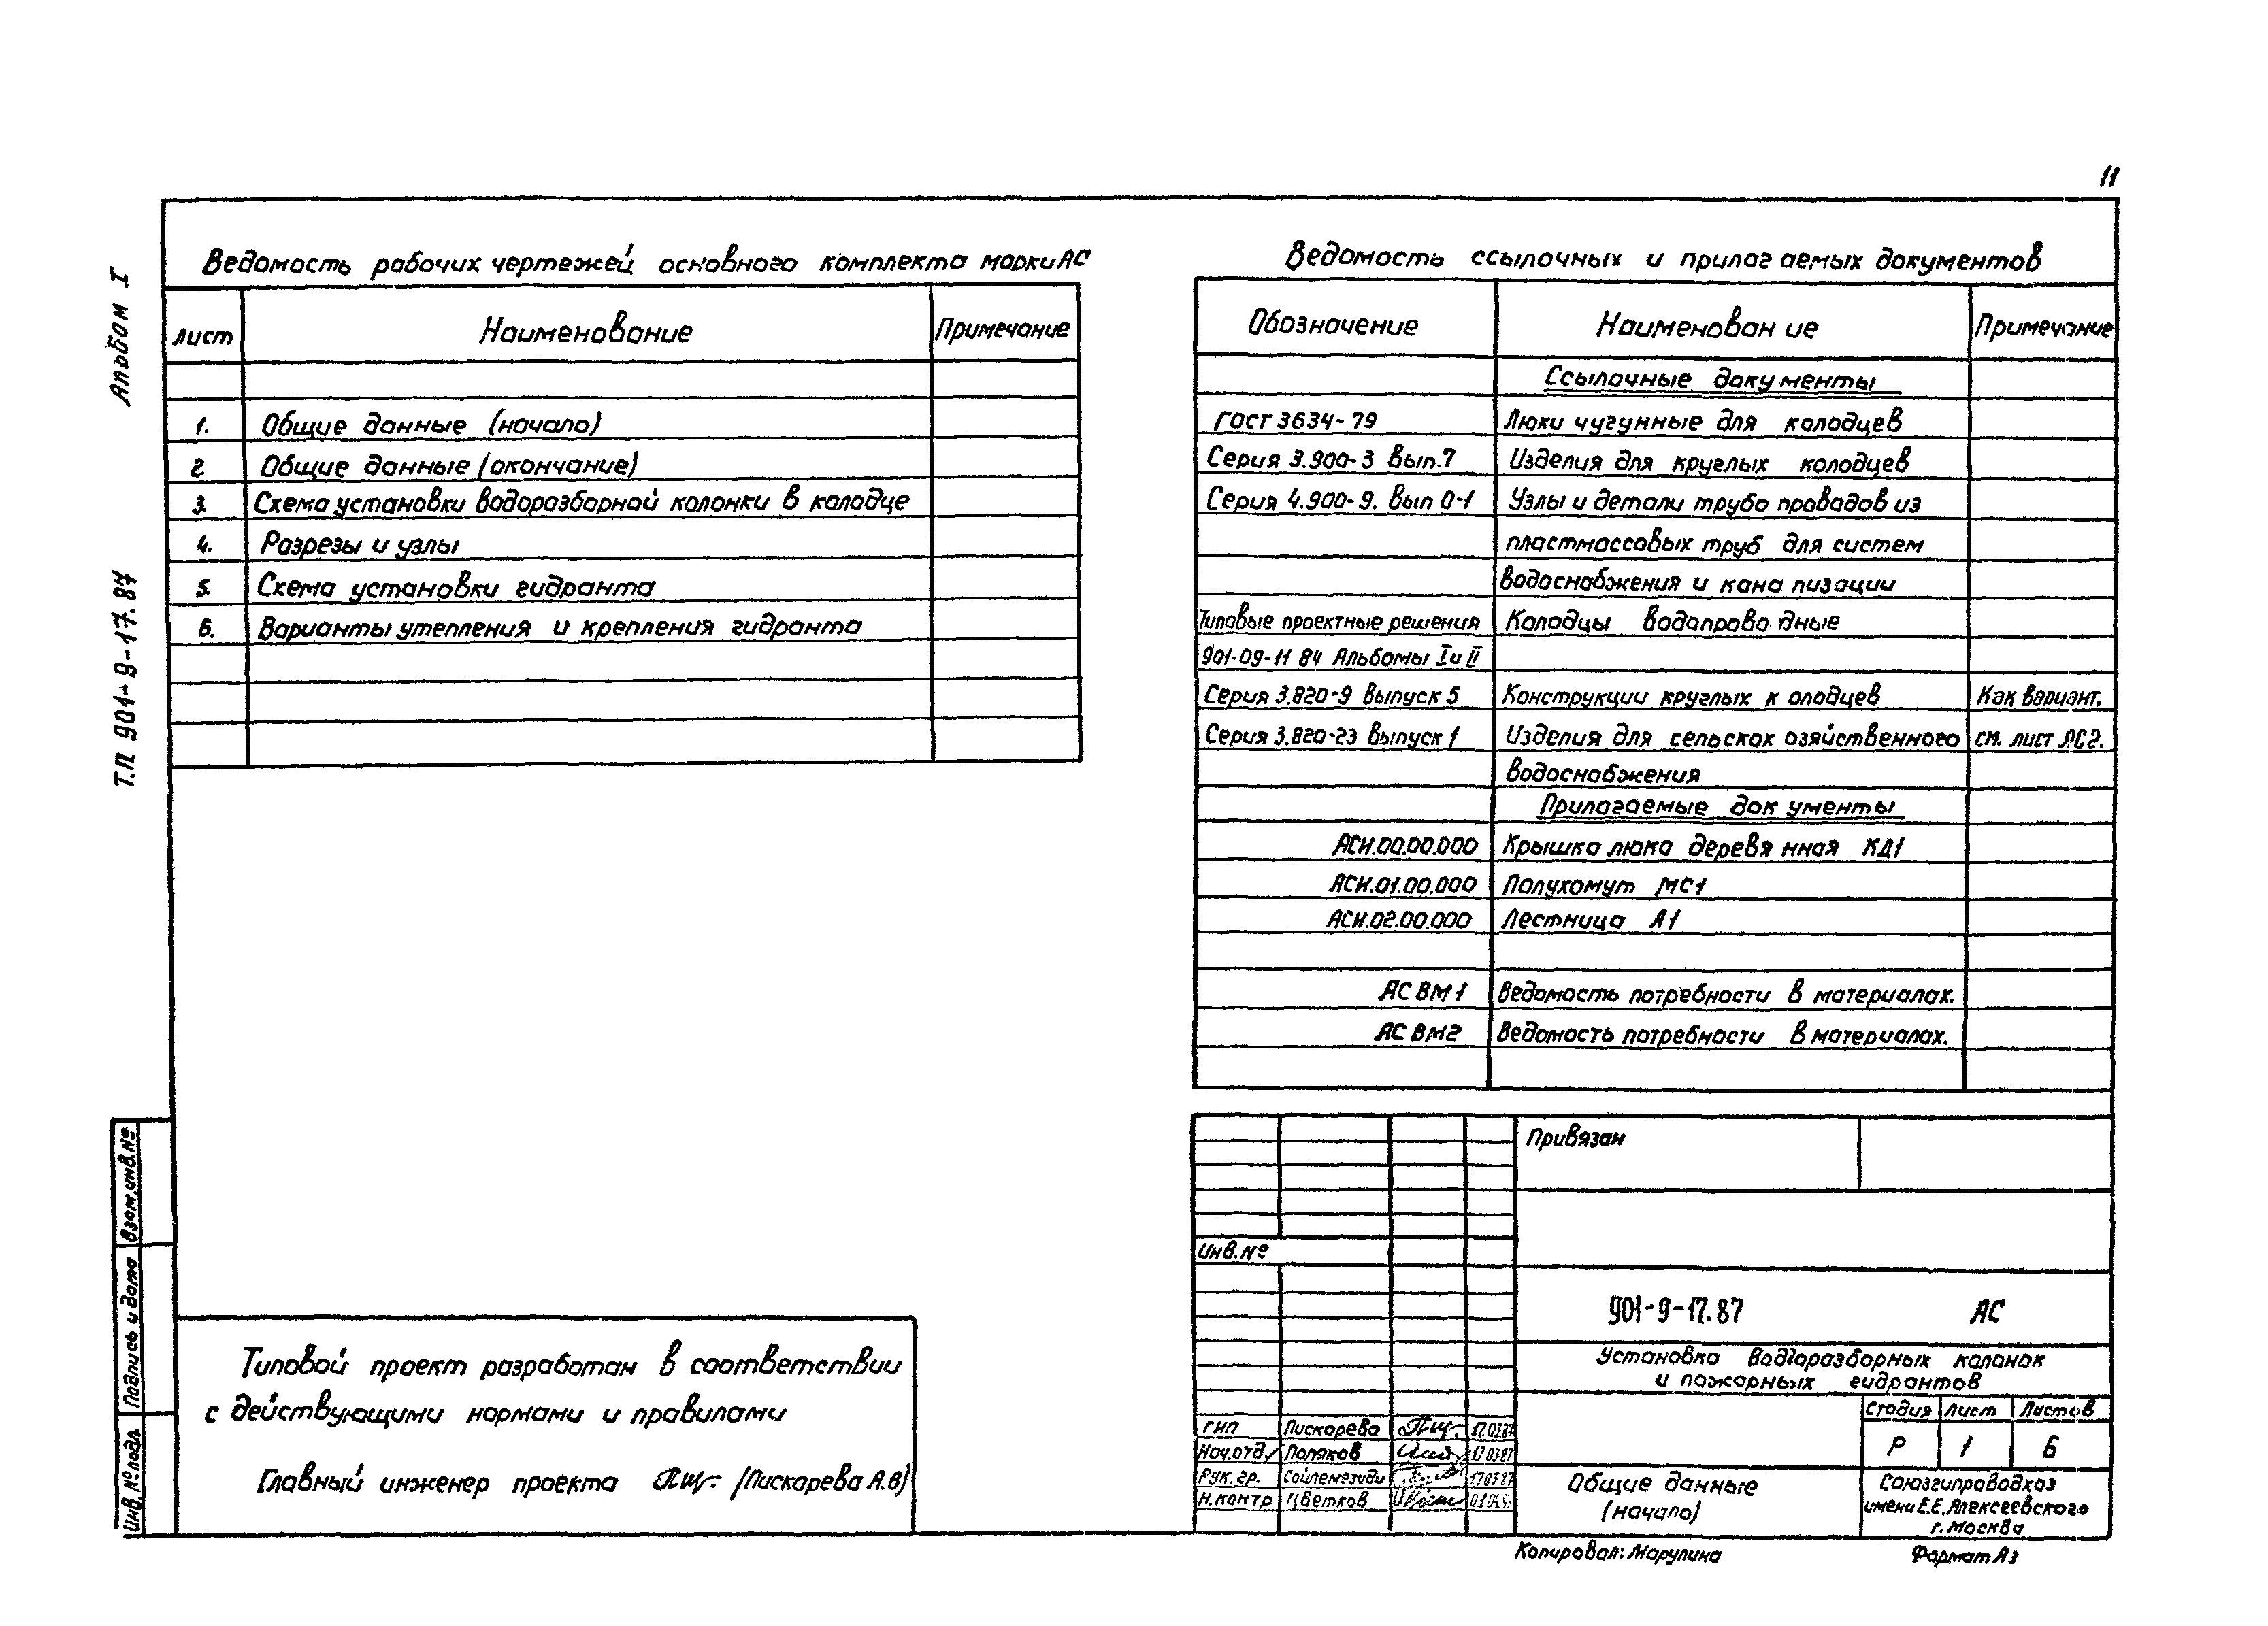 11
Альбом I
Т.П 901-9-17.87
Ведомость рабочих чертежей основного комплекта марки АС
Лист Наименование Примечание
1. Общие данные (начало)
2 Общие данные (окончание)
3. Схема установки водоразборной колонки в колодце
4. Разрезы и узлы
5. Схема установки гидранта
6. Варианты утепления и крепления гидранта
Ведомость ссылочных и прилагаемых документов
Обозначение Наименование Примечание
Ссылочные документы
ГОСТ 3634-79 Люки чугунные для колодцев
Серия 3.900-3 Вып.7 Изделия для круглых колодцев
Серия 4.900-9. Вып 0-1 Узлы и детали трубопроводов из
пластмассовых труб для систем
водоснабжения и канализации
Типовые проектные решения Колодцы водопроводные
901-09-11 84 Альбомы I и II
Серия 3.820-9 Выпуск 5 Конструкции круглых колодцев Как вариант,
Серия 3.820-23 Выпуск 1 Изделия для сельскохозяйственного см. лист АС2.
водоснабжения
Прилагаемые документы
АСИ.00.00.000 Крышка люка деревянная КД1
АСИ.01.00.000 Полухомут МС1
АСИ.02.00.000 Лестница Л1
АС ВМ1 Ведомость потребности в материалах.
АС ВМ2 Ведомость потребности в материалах.
Взам.инв.№
Подпись и дата
Инв.№ подл.
Типовой проект разработан в соответствии
с действующими нормами и правилами
Главный инженер проекта /Пискарева А.В/
Привязан
Инв.№
901-9-17.87 АС
Установка водоразборных колонок
и пожарных гидрантов
Стадия Лист Листов
Р 1 6
ГИП Пискарева 17.03.87
Нач.отд. Поляков 17.03.87
Рук.гр. 17.03.87
Н.контр Цветков
Общие данные
(начало)
Союзгипроводхоз
имени Е.Е.Алексеевского
г. Москва
Копировал: Марулина Формат А3